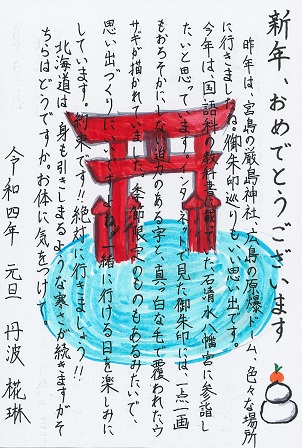 新年、おめでとうございます
昨年は、宮島の厳島神社、広島の原爆ドーム、色々な場所
に行きましたね。御朱印巡りもいい思い出です。
今年は、国語科の教科書に載っていた石清水八幡宮に参詣し
たいと思っています。インターネットで見た御朱印には、一点一画
もおろそかにしない迫力のある字と、真っ白な毛で覆われたウ
サギが描かれていました。季節限定のものもあるみたいで、
思い出づくりに 一緒に行ける日を楽しみに
しています。約束です!!絶対に行きましょう!!
北海道は、身も引きしまるような寒さが続きますがそ
ちらはどうですか。お体に気をつけて
令和四年 元旦 丹波 椛琳